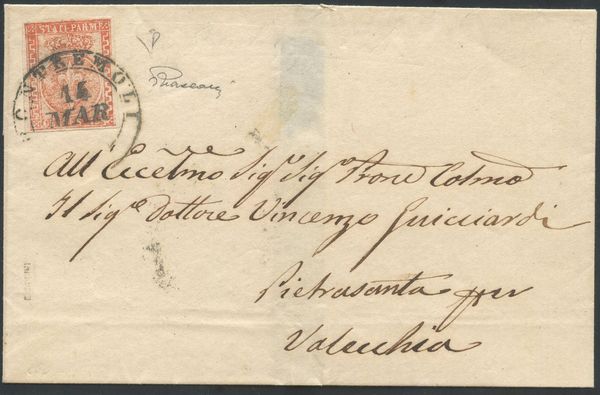 STATI PARM
PONTREMOLI
14
MAR
All' Eccellmo Sigr Sigr Prone Colmo
Il Sigre Dottore Vincenzo Guicciardi
Pietrasanta per
Valecchia